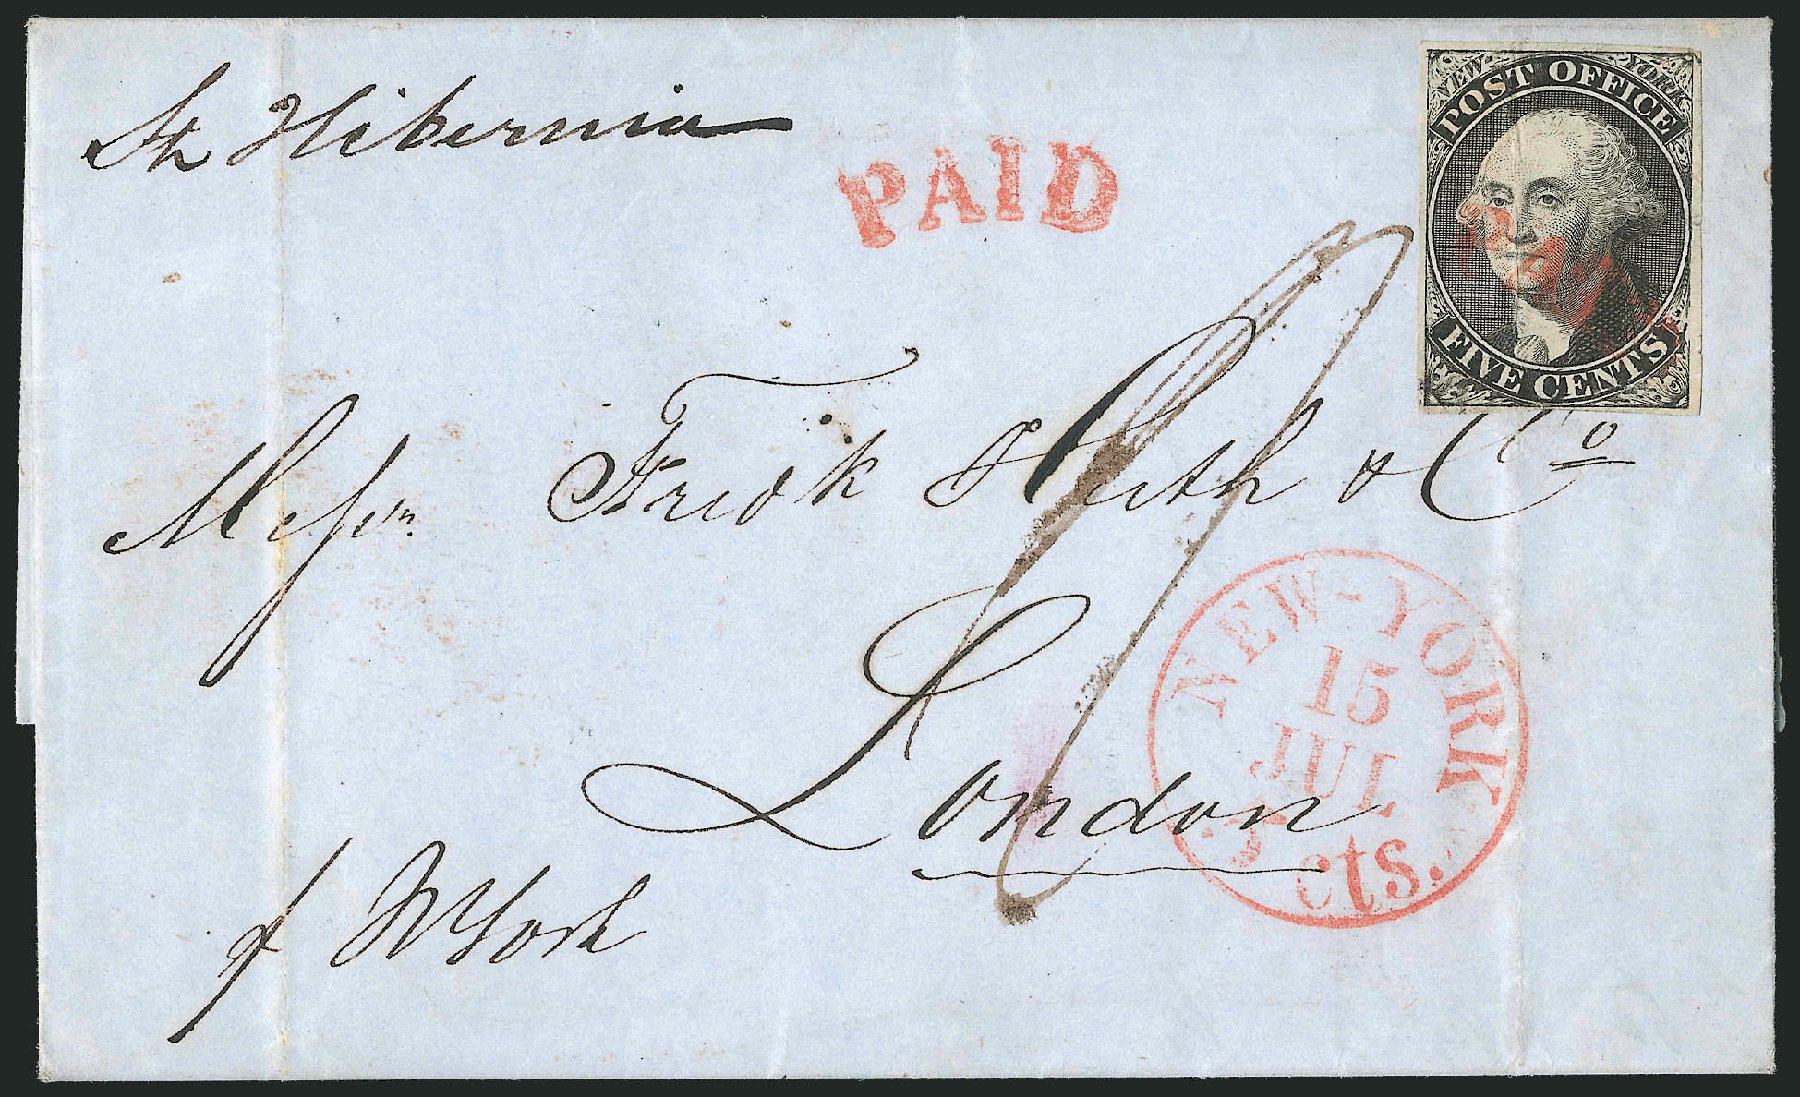 St Hibernia
PAID
NEW YORK
POST OFFICE
FIVE CENTS
PAID
Messrs. Fredk Huth & Co
London
NEW-YORK
15
JUL
5 cts.
p NYork